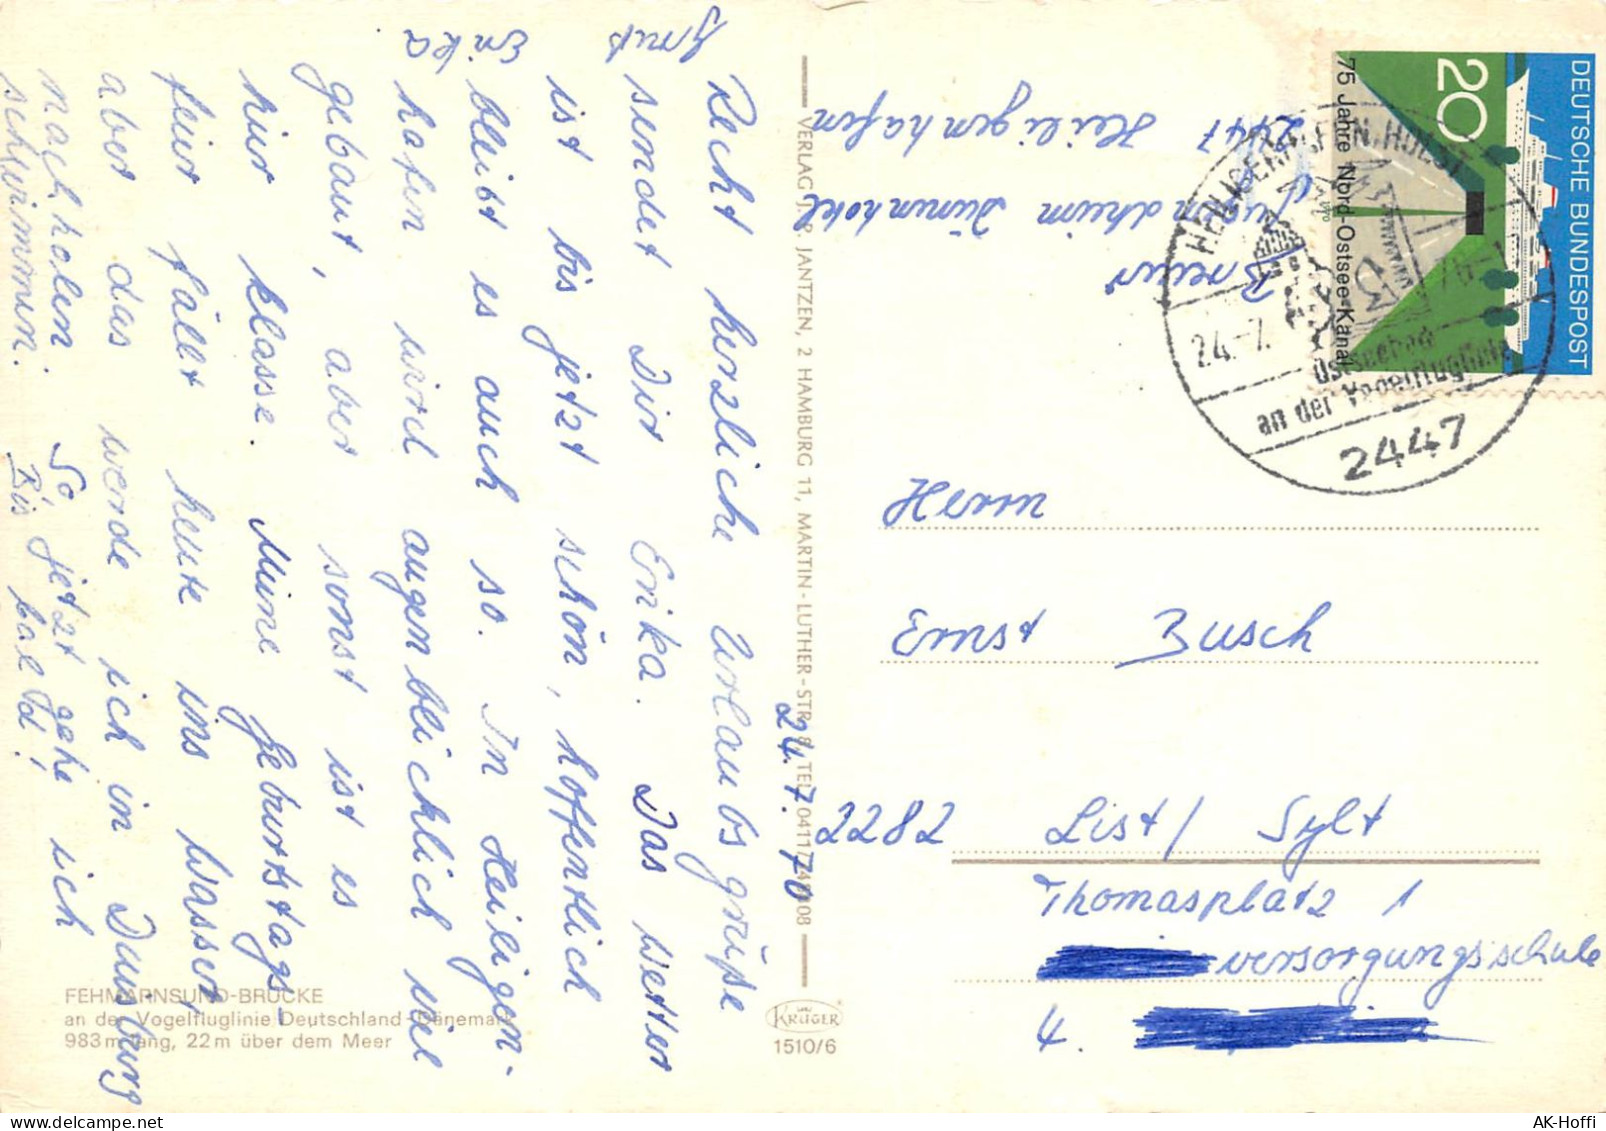 24.7.70
Recht herzliche Urlaubsgrüße
sendet Dir Erika. Das Wetter
ist bis jetzt schön, hoffentlich
bleibt es auch so. In Heiligen-
hafen wird augenblicklich viel
gebaut, aber sonst ist es
hier klasse. Meine Geburtstags-
feier fällt heute ins Wasser,
aber das werde ich in Duisburg
nachholen. So jetzt gehe ich
schwimmen. Bis bald!
Gruß
Erika
Breuer
Jugendheim Dünenhotel
2447 Heiligenhafen
VERLAG J. R. JANTZEN, 2 HAMBURG 11, MARTIN-LUTHER-STR. 8, TEL. 0411/
DEUTSCHE BUNDESPOST
20
75 Jahre Nord-Ostsee-Kanal
1970
HEILIGENHAFEN, HOLST
24.-7.
Ostseebad
an der Vogelfluglinie
2447
Herrn
Ernst Busch
2282 List / Sylt
Thomasplatz 1
versorgungsschule
4.
FEHMARNSUND-BRÜCKE
an der Vogelfluglinie Deutschland-Dänemark
983 m lang, 22 m über dem Meer
KRÜGER
1510/6
AK-Hoffi